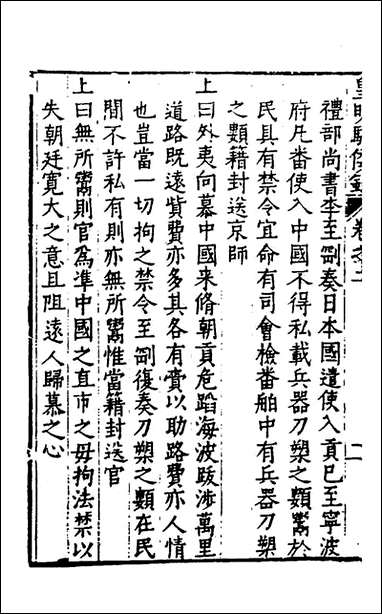 皇明馭倭錄 卷之二
禮部尚書李至剛奏日本國遣使入貢已至寧波
府凡番使入中國不得私載兵器刀槊之類鬻於
民具有禁令宜命有司會檢番舶中有兵器刀槊
之類籍封送京師
上曰外夷向慕中國来脩朝貢危蹈海波跋涉萬里
道路既遠貲費亦多其各有賫以助路費亦人情
也豈當一切拘之禁令至剛復奏刀槊之類在民
間不許私有則亦無所鬻惟當籍封送官
上曰無所鬻則官爲準中國之直市之毋拘法禁以
失朝廷寛大之意且阻遠人歸慕之心